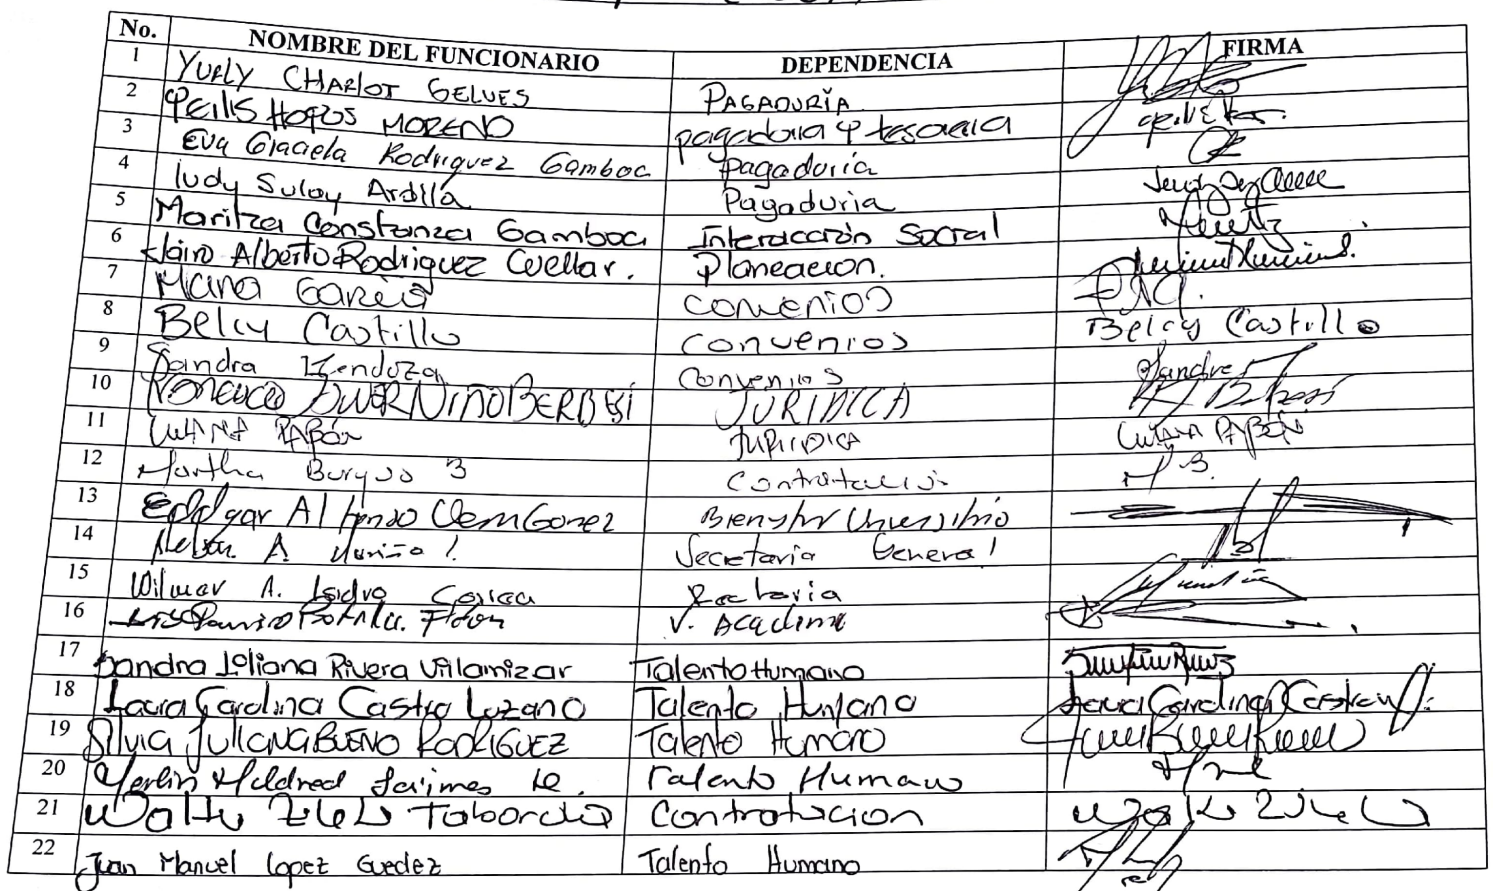 No. NOMBRE DEL FUNCIONARIO DEPENDENCIA FIRMA
1 YURLY CHARLOT GELVES PAGADURÍA
2 YEILIS HOYOS MORENO pagaduria y tesoreria
3 Eva Graciela Rodriguez Gamboa pagaduría
4 Iudy Suloy Ardila Pagaduria
5 Maritza Constanza Gamboa Interacción Social
6 Jairo Alberto Rodriguez Cuellar. Planeacion.
7 Maria García convenios
8 Belcy Castillo convenios Belcy Castillo
9 Sandra Mendoza convenios Sandra
10 NIÑO BERBESÍ JURIDICA
11 PABÓN JURIDICA PABÓN
12 Martha Burgos B Contratación M B.
13 Eddgar Alfonso Bienestar Universitario
14 A. Secretaria General
15 Wilmar A. Isidro Rectoria
16 V. Academi
17 Sandra Liliana Rivera Villamizar Talento Humano
18 Laura Carolina Castro Lozano Talento Humano Laura Carolina Castro
19 Silvia JULIANA BUENO RODRIGUEZ Talento Humano
20 Yerlin Mildred Jaimes Talento Humano
21 Taborda Contratacion
22 Juan Manuel Lopez Guedez Talento Humano